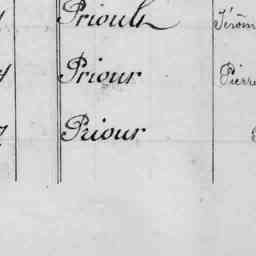 Prioult Jérôm
Priour Pierre
Priour